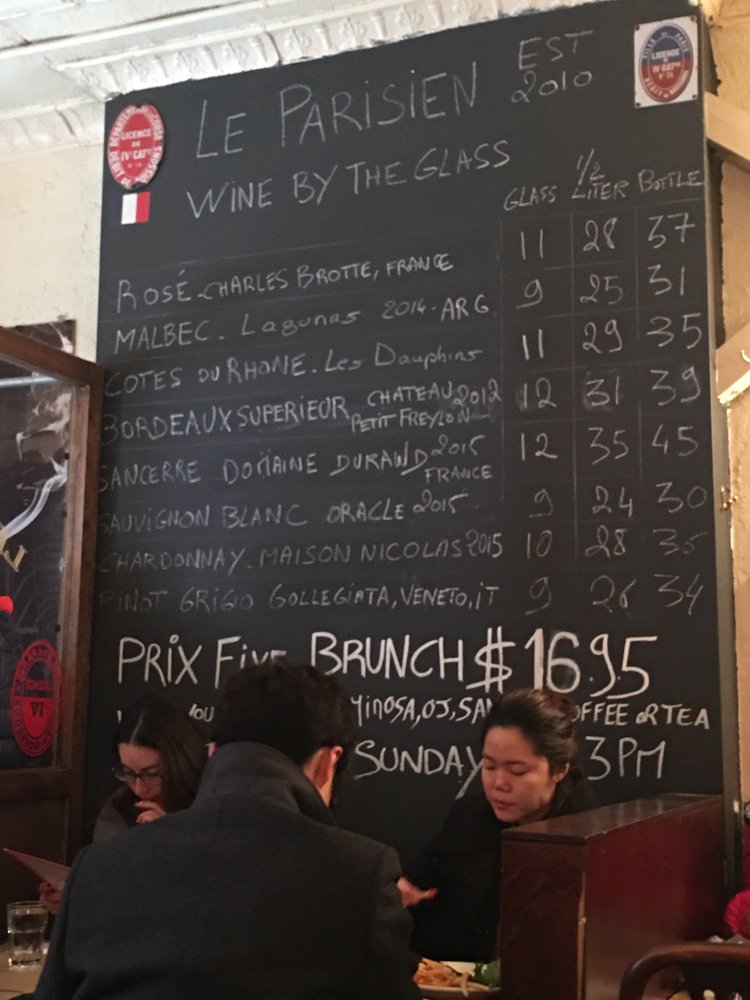 LE PARISIEN EST 2010
LICENCE DE IVe CATie
VILLE DE PARIS
LICENCE DE IV CATie
WINE BY THE GLASS
GLASS 1/2 LITER BOTTLE
ROSÉ - CHARLES BROTTE, FRANCE 11 28 37
MALBEC. Lagunas 2014. ARG. 9 25 31
COTES DU RHONE. Les Dauphins 11 29 35
BORDEAUX SUPERIEUR CHATEAU PETIT FREYLON 2012 12 31 39
SANCERRE DOMAINE DURAND 2015 FRANCE 12 35 45
SAUVIGNON BLANC ORACLE 2015 9 24 30
CHARDONNAY. MAISON NICOLAS 2015 10 28 35
PINOT GRIGIO COLLEGIATA, VENETO, IT 9 26 34
PRIX FIXE BRUNCH $16.95
MIMOSA, OJ, COFFEE OR TEA
SUNDAY 3PM